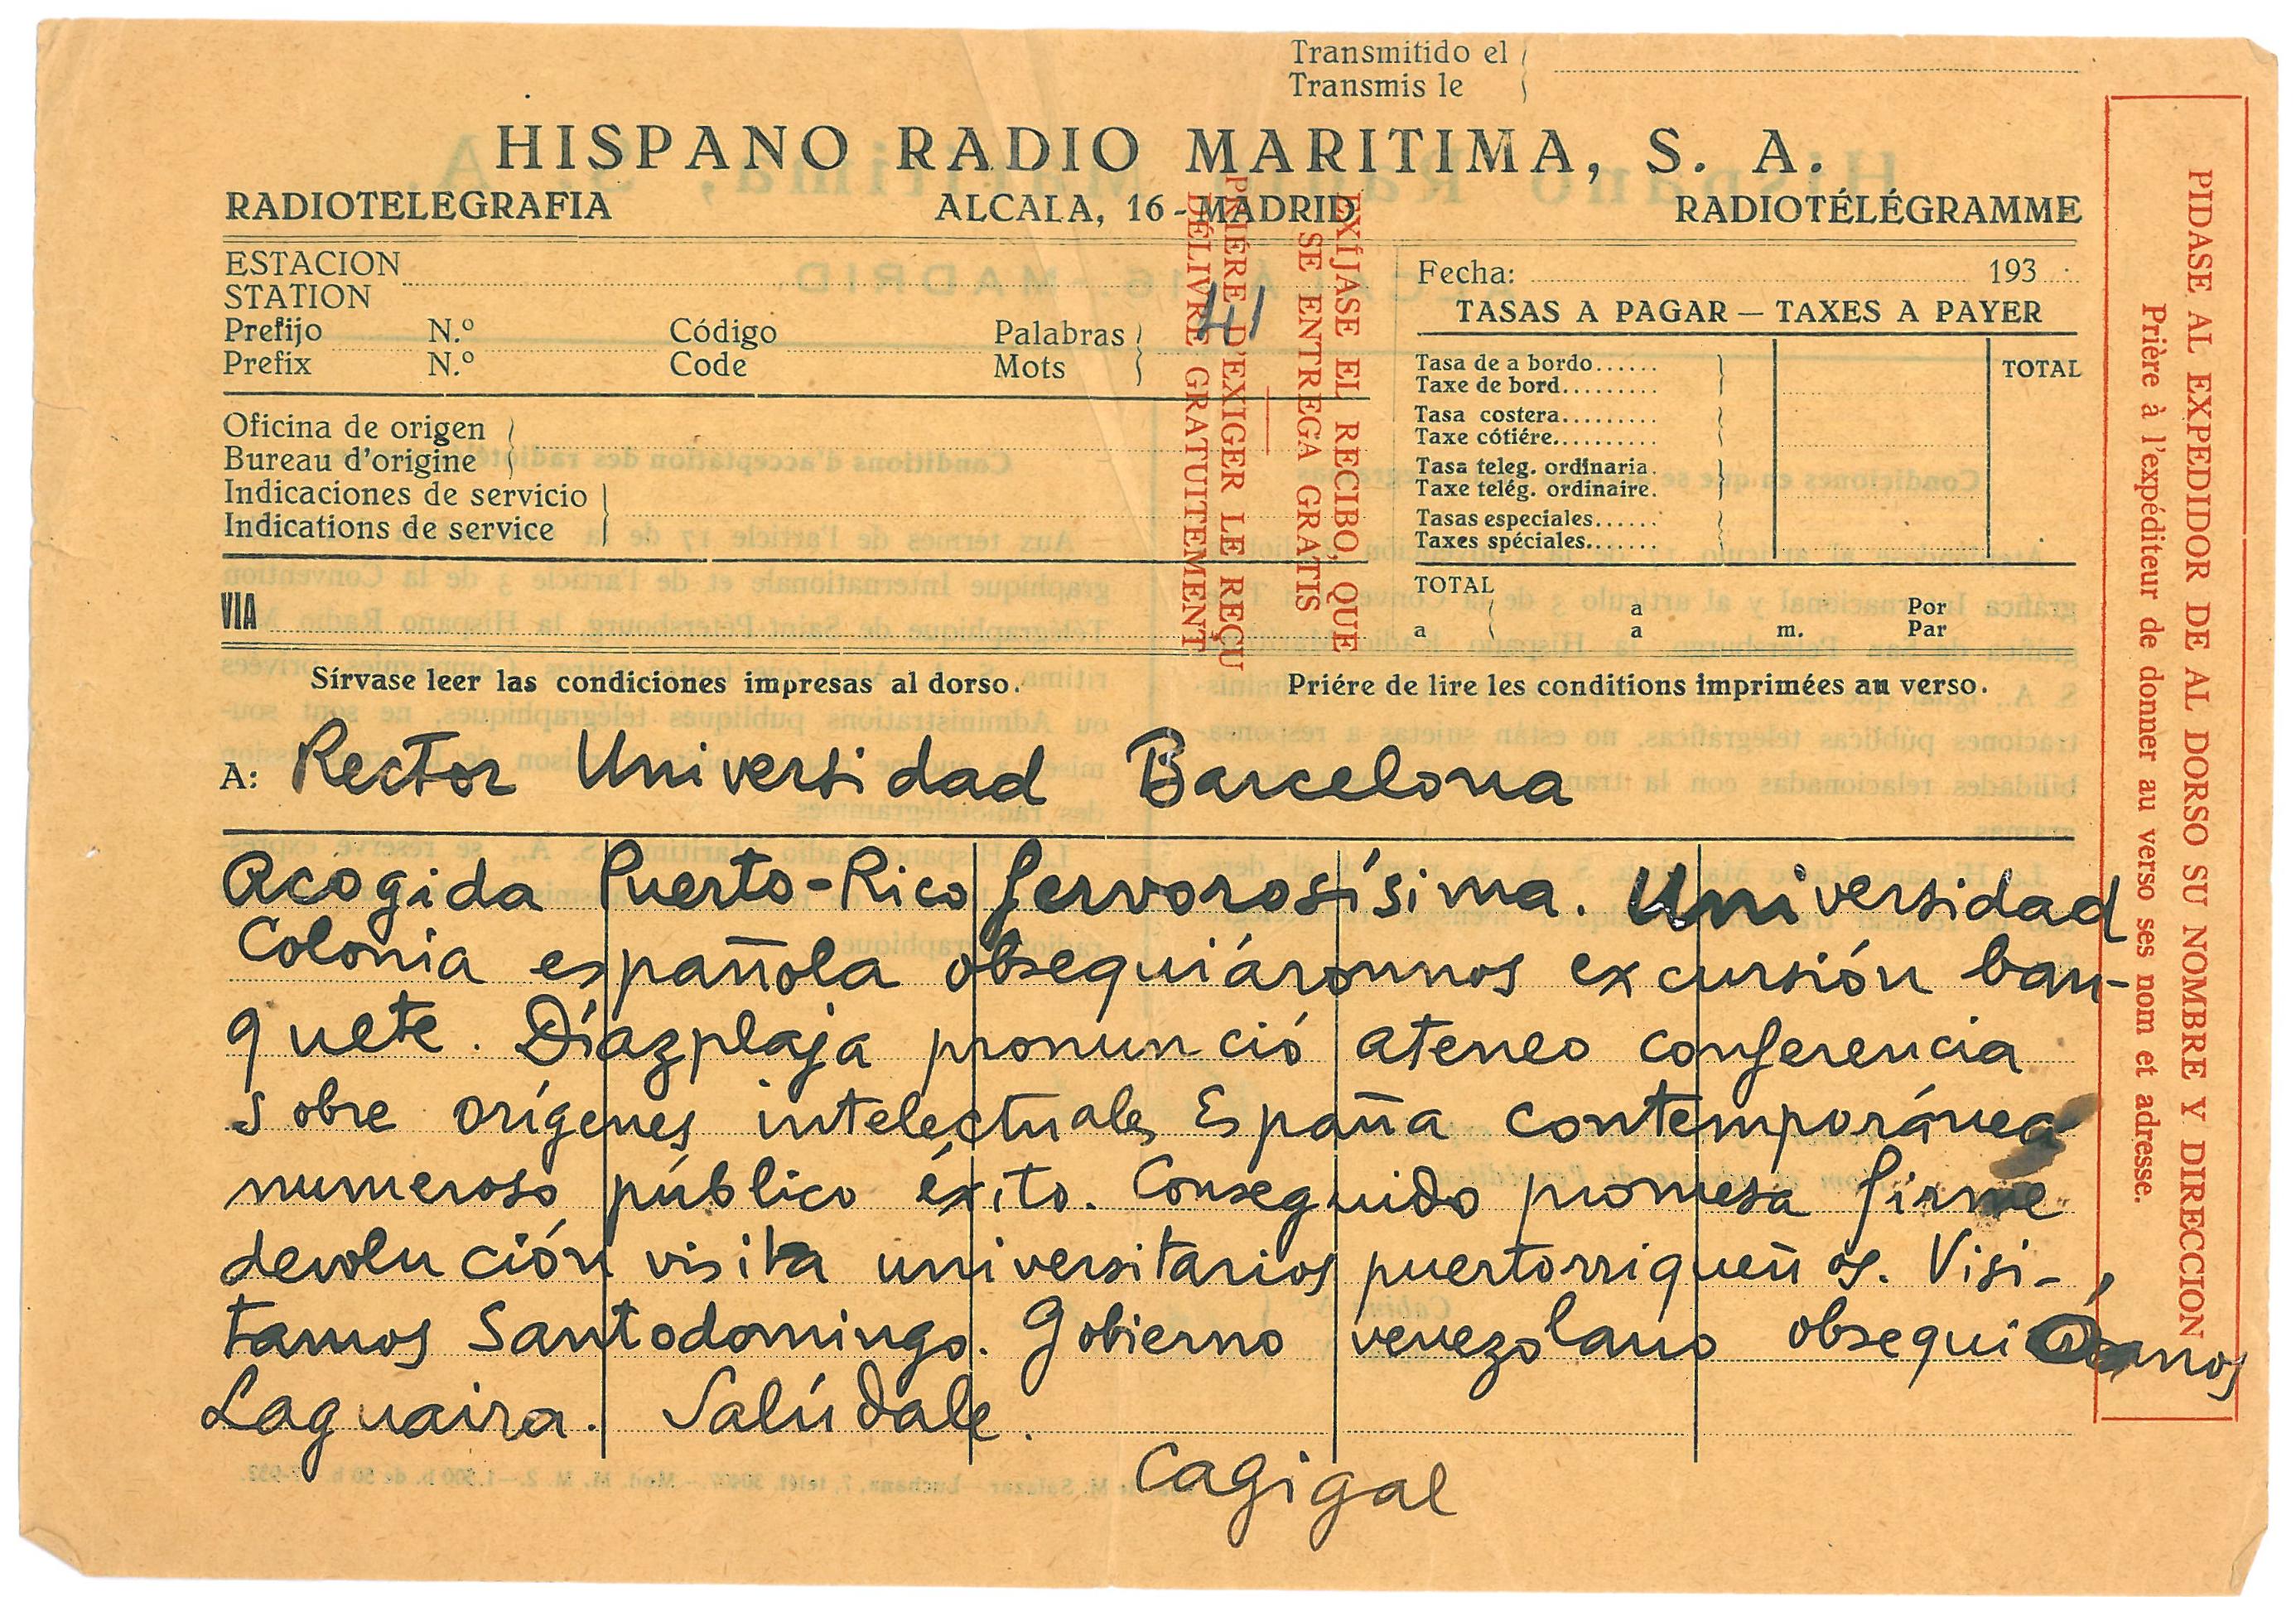 Transmitido el
Transmis le
HISPANO RADIO MARITIMA, S. A.
RADIOTELEGRAFIA ALCALA, 16 - MADRID RADIOTÉLÉGRAMME
ESTACION
STATION
Prefijo N.º Código Palabras
Prefix N.º Code Mots
41
Oficina de origen
Bureau d'origine
Indicaciones de servicio
Indications de service
VIA
EXÍJASE EL RECIBO, QUE
SE ENTREGA GRATIS
PRIÈRE D'EXIGER LE REÇU
DÉLIVRÉ GRATUITEMENT
Fecha: 193
TASAS A PAGAR — TAXES A PAYER
Tasa de a bordo......
Taxe de bord.........
TOTAL
Tasa costera.........
Taxe cótiére..........
Tasa teleg. ordinaria.
Taxe telég. ordinaire.
Tasas especiales......
Taxes spéciales.......
TOTAL
a Por
a a m. Par
Sírvase leer las condiciones impresas al dorso.
Priére de lire les conditions imprimées au verso.
A: Rector Universidad Barcelona
Acogida Puerto-Rico fervorosísima. Universidad
Colonia española obsequiáronnos excursión ban-
quete. Díazplaja pronunció ateneo conferencia
sobre orígenes intelectuales España contemporánea
numeroso público éxito. Conseguido promesa firme
devolución visita universitarios puertorriqueños. Visi-
tamos Santodomingo. Gobierno venezolano obsequiónos
Laguaira. Salúdale.
Cagigal
PIDASE AL EXPEDIDOR DE AL DORSO SU NOMBRE Y DIRECCION
Prière à l'expéditeur de donner au verso ses nom et adresse.